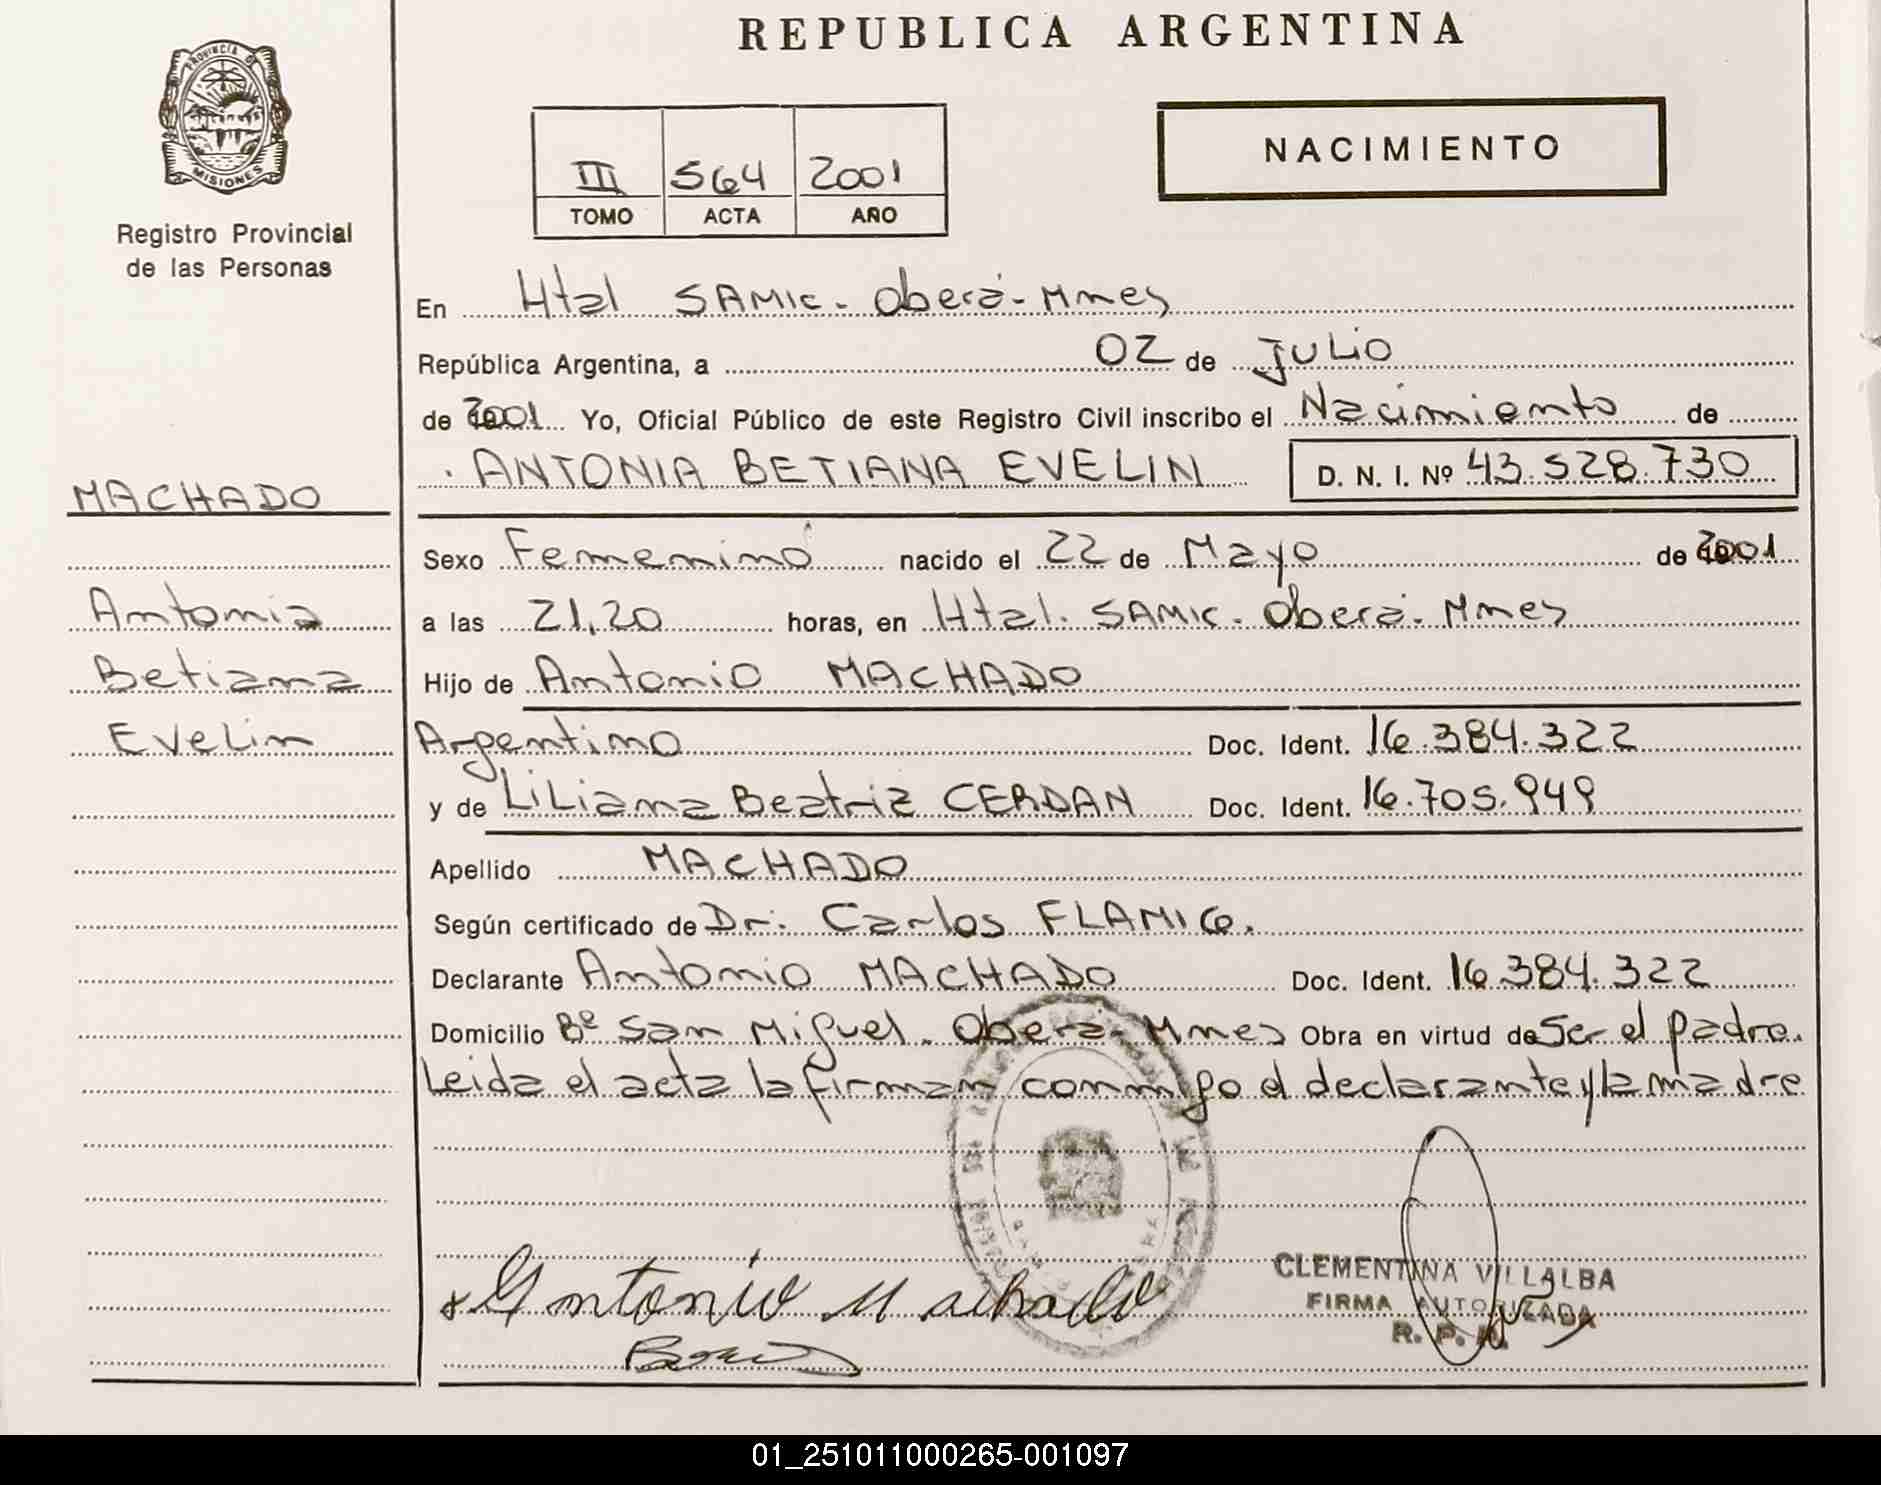 REPUBLICA ARGENTINA
PROVINCIA DE
MISIONES
Registro Provincial
de las Personas
NACIMIENTO
III 564 2001
TOMO ACTA AÑO
En Htal SAMIC - Oberá - Mnes
República Argentina, a 02 de JULIO
de 2001 Yo, Oficial Público de este Registro Civil inscribo el Nacimiento de
ANTONIA BETIANA EVELIN D. N. I. Nº 43.528.730
MACHADO
Antonia
Betiana
Evelin
Sexo Femenino nacido el 22 de Mayo de 2001
a las 21,20 horas, en Htal. SAMIC - Oberá - Mnes
Hijo de Antonio MACHADO
Argentino Doc. Ident. 16.384.322
y de Liliana Beatriz CERDAN Doc. Ident. 16.705.949
Apellido MACHADO
Según certificado de Dr: Carlos FLAMIG.
Declarante Antonio MACHADO Doc. Ident. 16.384.322
Domicilio Bº San Miguel. Oberá - Mnes Obra en virtud de Ser el padre.
Leida el acta la firman conmigo el declarante y la madre
Antonio Machado
CLEMENTINA VILLALBA
FIRMA AUTORIZADA
01_251011000265-001097